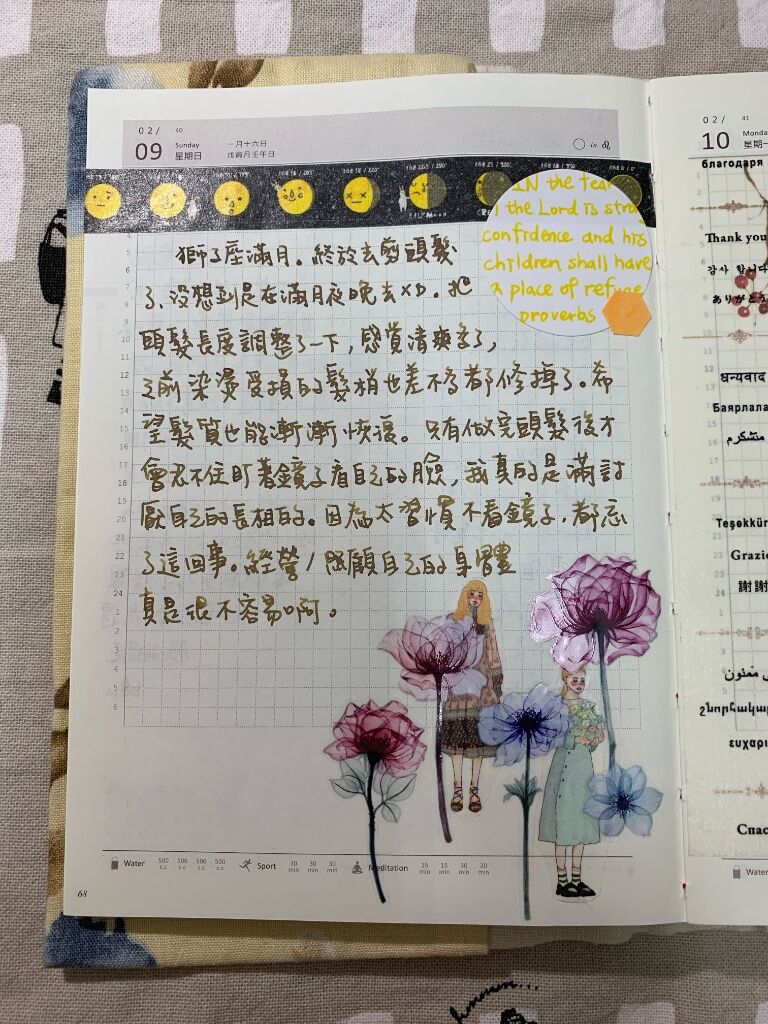 02/ 40
09 Sunday 一月十六日
星期日 戊寅月壬午日
in ♌
IN the fear
the Lord is
confidence and his
children shall have
a place of refuge
proverbs
獅子座滿月。終於去剪頭髮
了、沒想到是在滿月夜晚去XD。把
頭髮長度調整了一下，感覺清爽多了，
之前染燙受損的髮梢也差不多都修掉了。希
望髮質也能漸漸恢復。只有做完頭髮後才
會忍不住盯著鏡子看自己的臉，我真的是滿討
厭自己的長相的。因為太習慣不看鏡子，都忘
了這回事。經營/照顧自己的身體
真是很不容易啊。
4
5
6
7
8
9
10
11
12
13
14
15
16
17
18
19
20
21
22
23
24
1
2
3
4
5
6
Water 500 c.c 500 c.c 500 c.c 500 c.c Sport 30 min 30 min 30 min 30 min Meditation 15 min 15 min 30 min 30 min
68
02/ 41
10 Monda
星期一
благодаря
Thank you
감사 합니다
ありがとう
धन्यवाद
Баярлала
متشکرم
Teşekkür
Grazie
謝謝
ممنون
շնորհակալ
ευχαρι
Спас
Water
hmmm...